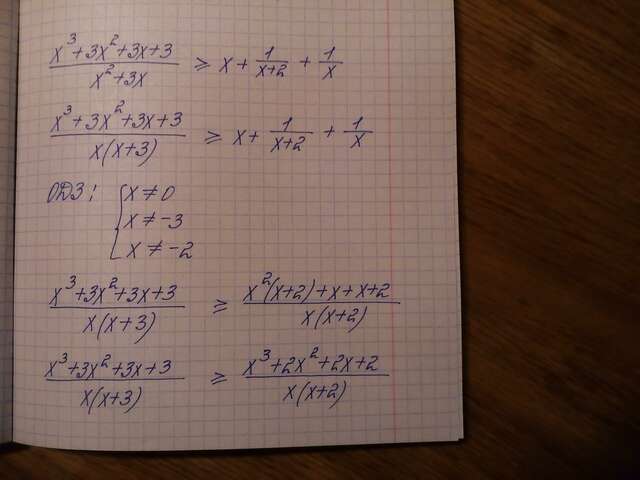 (x³+3x²+3x+3)/(x²+3x) ≥ x + 1/(x+2) + 1/x
(x³+3x²+3x+3)/(x(x+3)) ≥ x + 1/(x+2) + 1/x
ОДЗ: { x ≠ 0
x ≠ -3
x ≠ -2
(x³+3x²+3x+3)/(x(x+3)) ≥ (x²(x+2)+x+x+2)/(x(x+2))
(x³+3x²+3x+3)/(x(x+3)) ≥ (x³+2x²+2x+2)/(x(x+2))